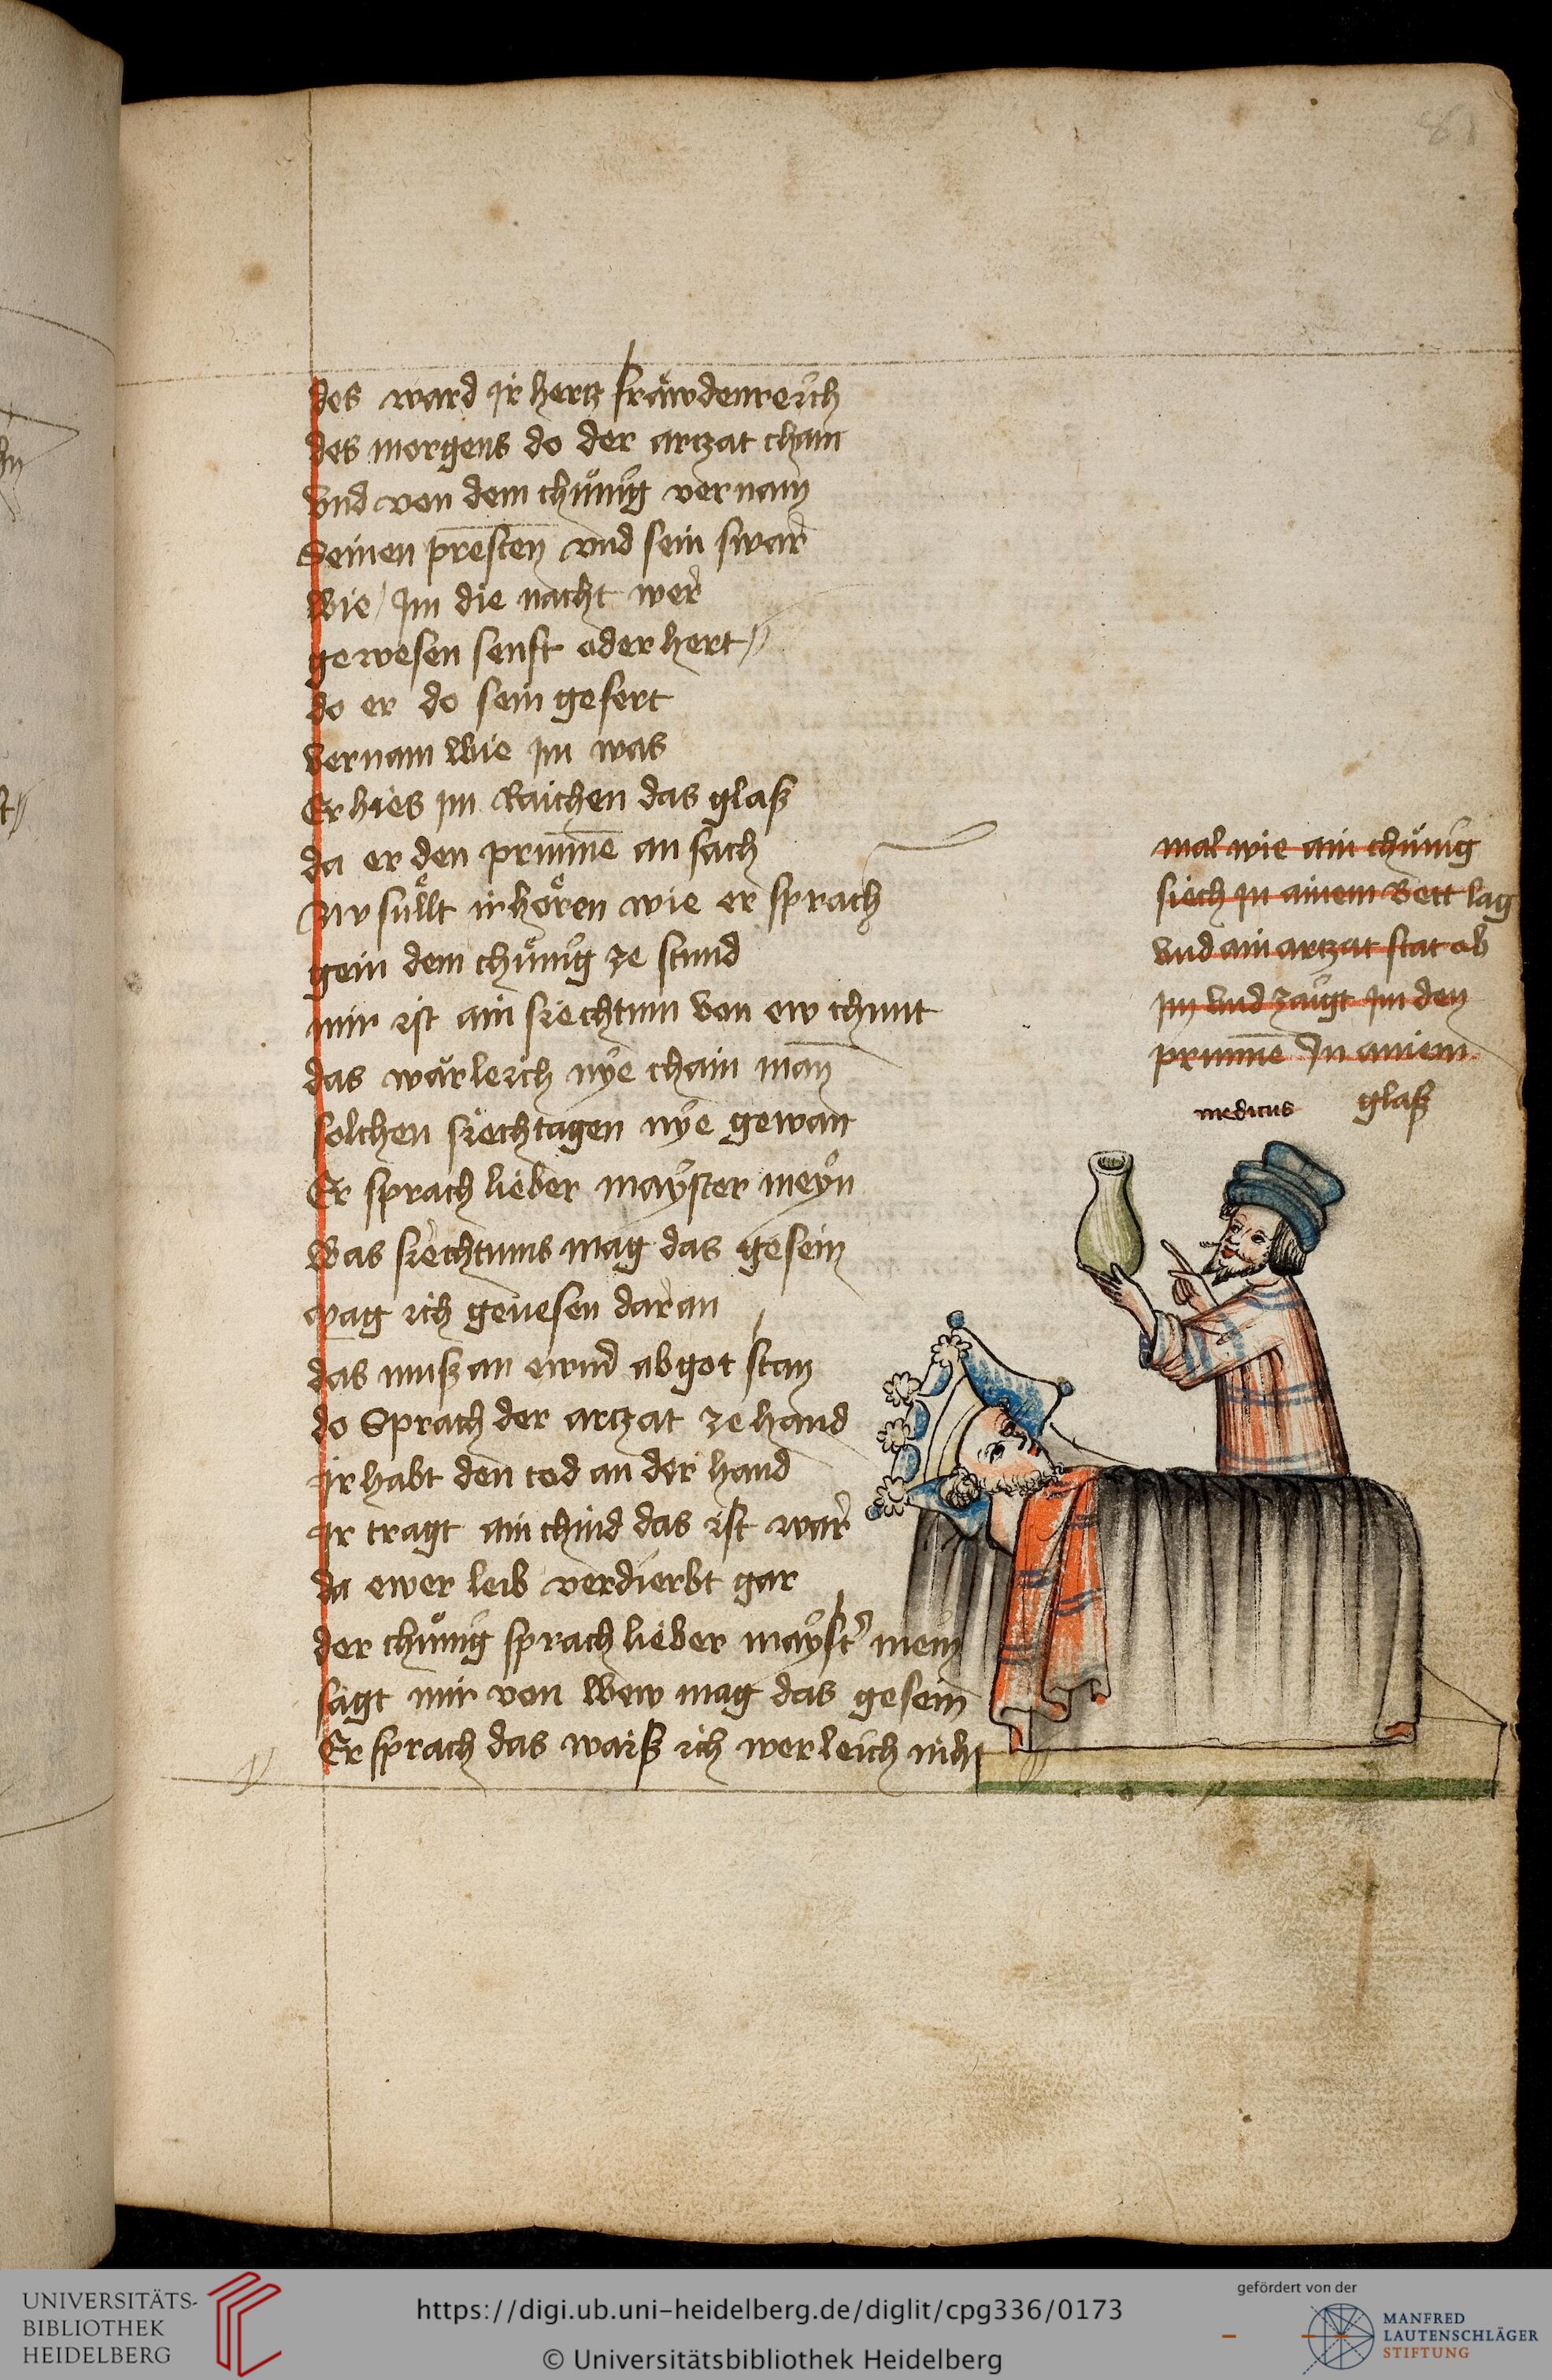 81
des ward ir hertz fräwdenreich
des morgens do der arczat cham
vnd von dem chünig vernam
Seinen presten vnd sein swar
wie Im die nacht wer
gewesen senft oder hert
do er do sein gefert
vernam wie im was
Er hies im Raichen das glaß
da er den prunne an sach
Nv süllt ir hören wie er sprach
gein dem chünig ze stund
mir ist ain siechtum von ew chunt
das wärleich nye chain man
solchen siechtagen nye gewan
Er sprach lieber mayster meyn
Was siechtums mag das gesein
mag ich genesen daran
das muß an ewrm abgot stan
do Sprach der arczat ze hand
ir habt den tod an der hand
ir tragt ain chind das ist war
da ewer leib verdierbt gar
der chünig sprach lieber mayster mein
sagt mir von wew mag das gesein
Er sprach das waiß ich werleich niht
mal wie ain chünig
siech in ainem Bett lag
vnd ain arczat stat ob
im vnd zaigt im den
prunne In ainem
glaß
medicus
UNIVERSITÄTS-
BIBLIOTHEK
HEIDELBERG
https://digi.ub.uni-heidelberg.de/diglit/cpg336/0173
© Universitätsbibliothek Heidelberg
gefördert von der
MANFRED
LAUTENSCHLÄGER
STIFTUNG